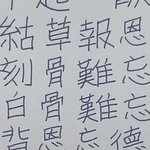 結草報恩
刻骨難忘
白骨難忘
背恩忘德